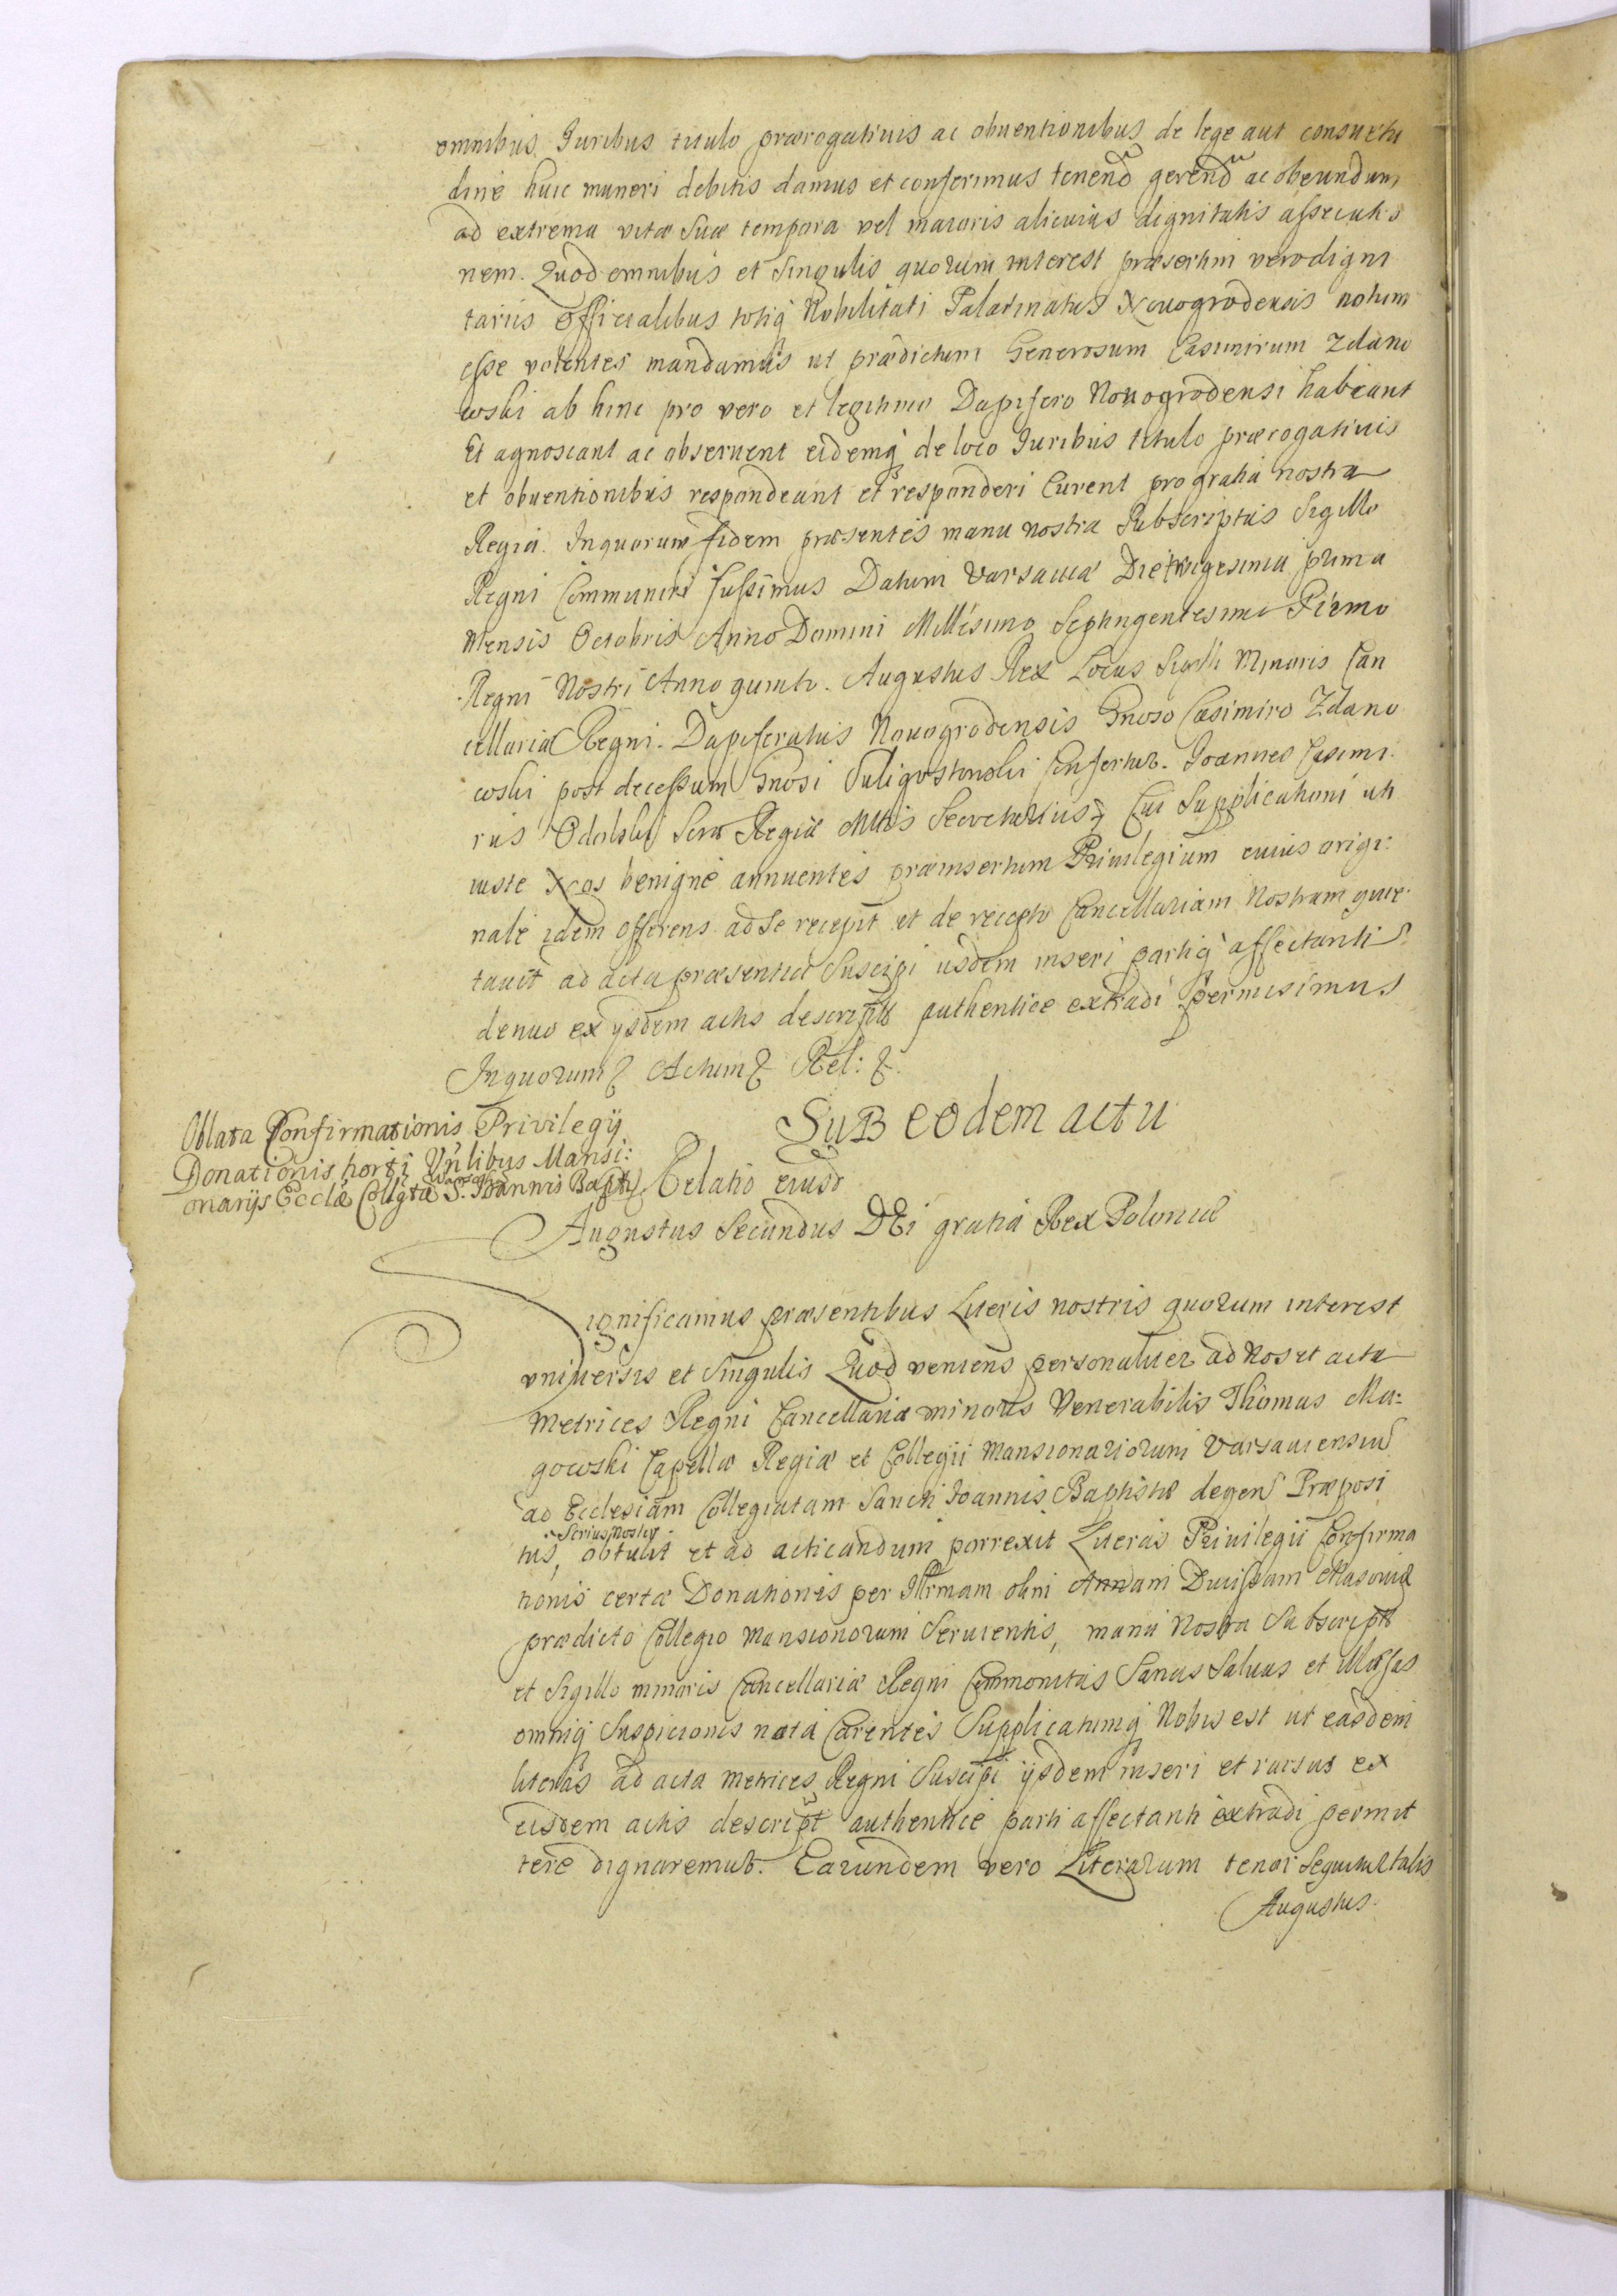 omnibus Juribus titulo prærogativis ac obventionibus de lege aut consvetu
dine huic muneri debitis damus et conferimus tenend gerend ac obeundum
ad extrema vitæ suæ tempora vel maioris alicuius dignitatis assecutio
nem. Quod omnibus et singulis quorum interest præsertim vero digni
tariis officialibus totiq Nobilitati Palatinatus Novogrodensis notum
esse volentes mandamus ut prædictum Generosum Casimirum Zdano
wski ab hinc pro vero et legitimo Dapifero Novogrodensi habeant
Et agnoscant ac observent eidemq de loco Juribus titulo prærogativis
et obventionibus respondeant et responderi curent pro gratia nostra
Regia. In quorum fidem præsentes manu nostra subscriptas Sigillo
Regni communiri iussimus Datum Varsaviæ Die trigesima prima
Mensis Octobris Anno Domini Millesimo Septingentesimo Primo
Regni Nostri Anno quinto. Augustus Rex Locus Sigilli Minoris Can
cellariæ Regni. Dapiferatus Novogrodensis Gnoso Casimiro Zdano
wski post decessum Gnosi Suligostowski confertur. Joannes Casimi
rus Odolski Sacræ Regiæ Mttis Secretarius Cui Supplicationi uti
iuste Nos benigne annuentes præinsertum Privilegium cuius origi:
nale idem offerens ad se recepit et de recepto Cancellariam Nostram quie
tavit ad acta præsentia suscipi iisdem inseri partiq affectanti
denuo ex ijsdem actis descript authentice extradi permisimus
In quorum Actum Rel:
Oblata Confirmationis Privilegij
Donationis horti Vnlibus Mansi:
onarijs Ecclæ Collgtæ S. Joannis Bapt
Sub eodem actu
Relatio eiusd
Augustus Secundus DEi gratia Rex Poloniæ
Significamus præsentibus Literis nostris quorum interest
vniversis et singulis Quod veniens personaliter ad Nos et acta
Metrices Regni Cancellariæ minoris Venerabilis Thomas Ma:
gowski Capellæ Regiæ et Collegii Mansionariorum Varsaviensium
ad Ecclesiam Collegiatam Sancti Joannis Baptistæ degen Præposi
Scrius Noster
tus, obtulit et ad acticandum porrexit Literas Privilegii Confirma
tionis certæ Donationis per Illrmam olim Annam Ducissam Masoviæ
prædicto Collegio Mansionorum servientis, manu Nostra subscript
et Sigillo minoris Cancellariæ Regni Commonitas Sanas Salvas et Illæsas
omniq suspicionis nota Carentes Supplicatumq Nobis est ut easdem
literas ad acta Metrices Regni Suscipi ijsdem inseri et rursus ex
eisdem actis descript authentice parti affectanti extradi permit
tere dignaremur. Earundem vero Literarum tenor sequitur talis
Augustus.